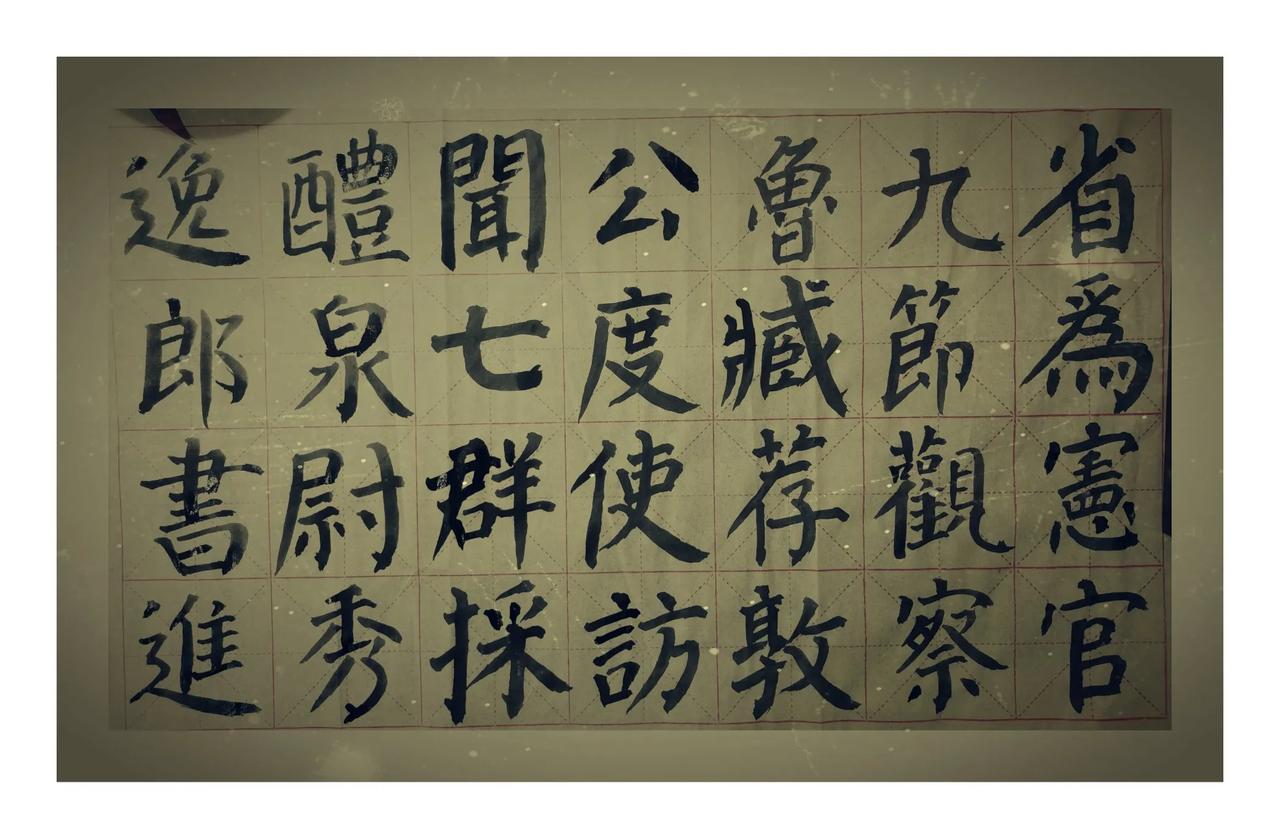 省爲憲官
九節觀察
魯臧荐敦
公度使訪
聞七群採
醴泉尉秀
逸郎書進